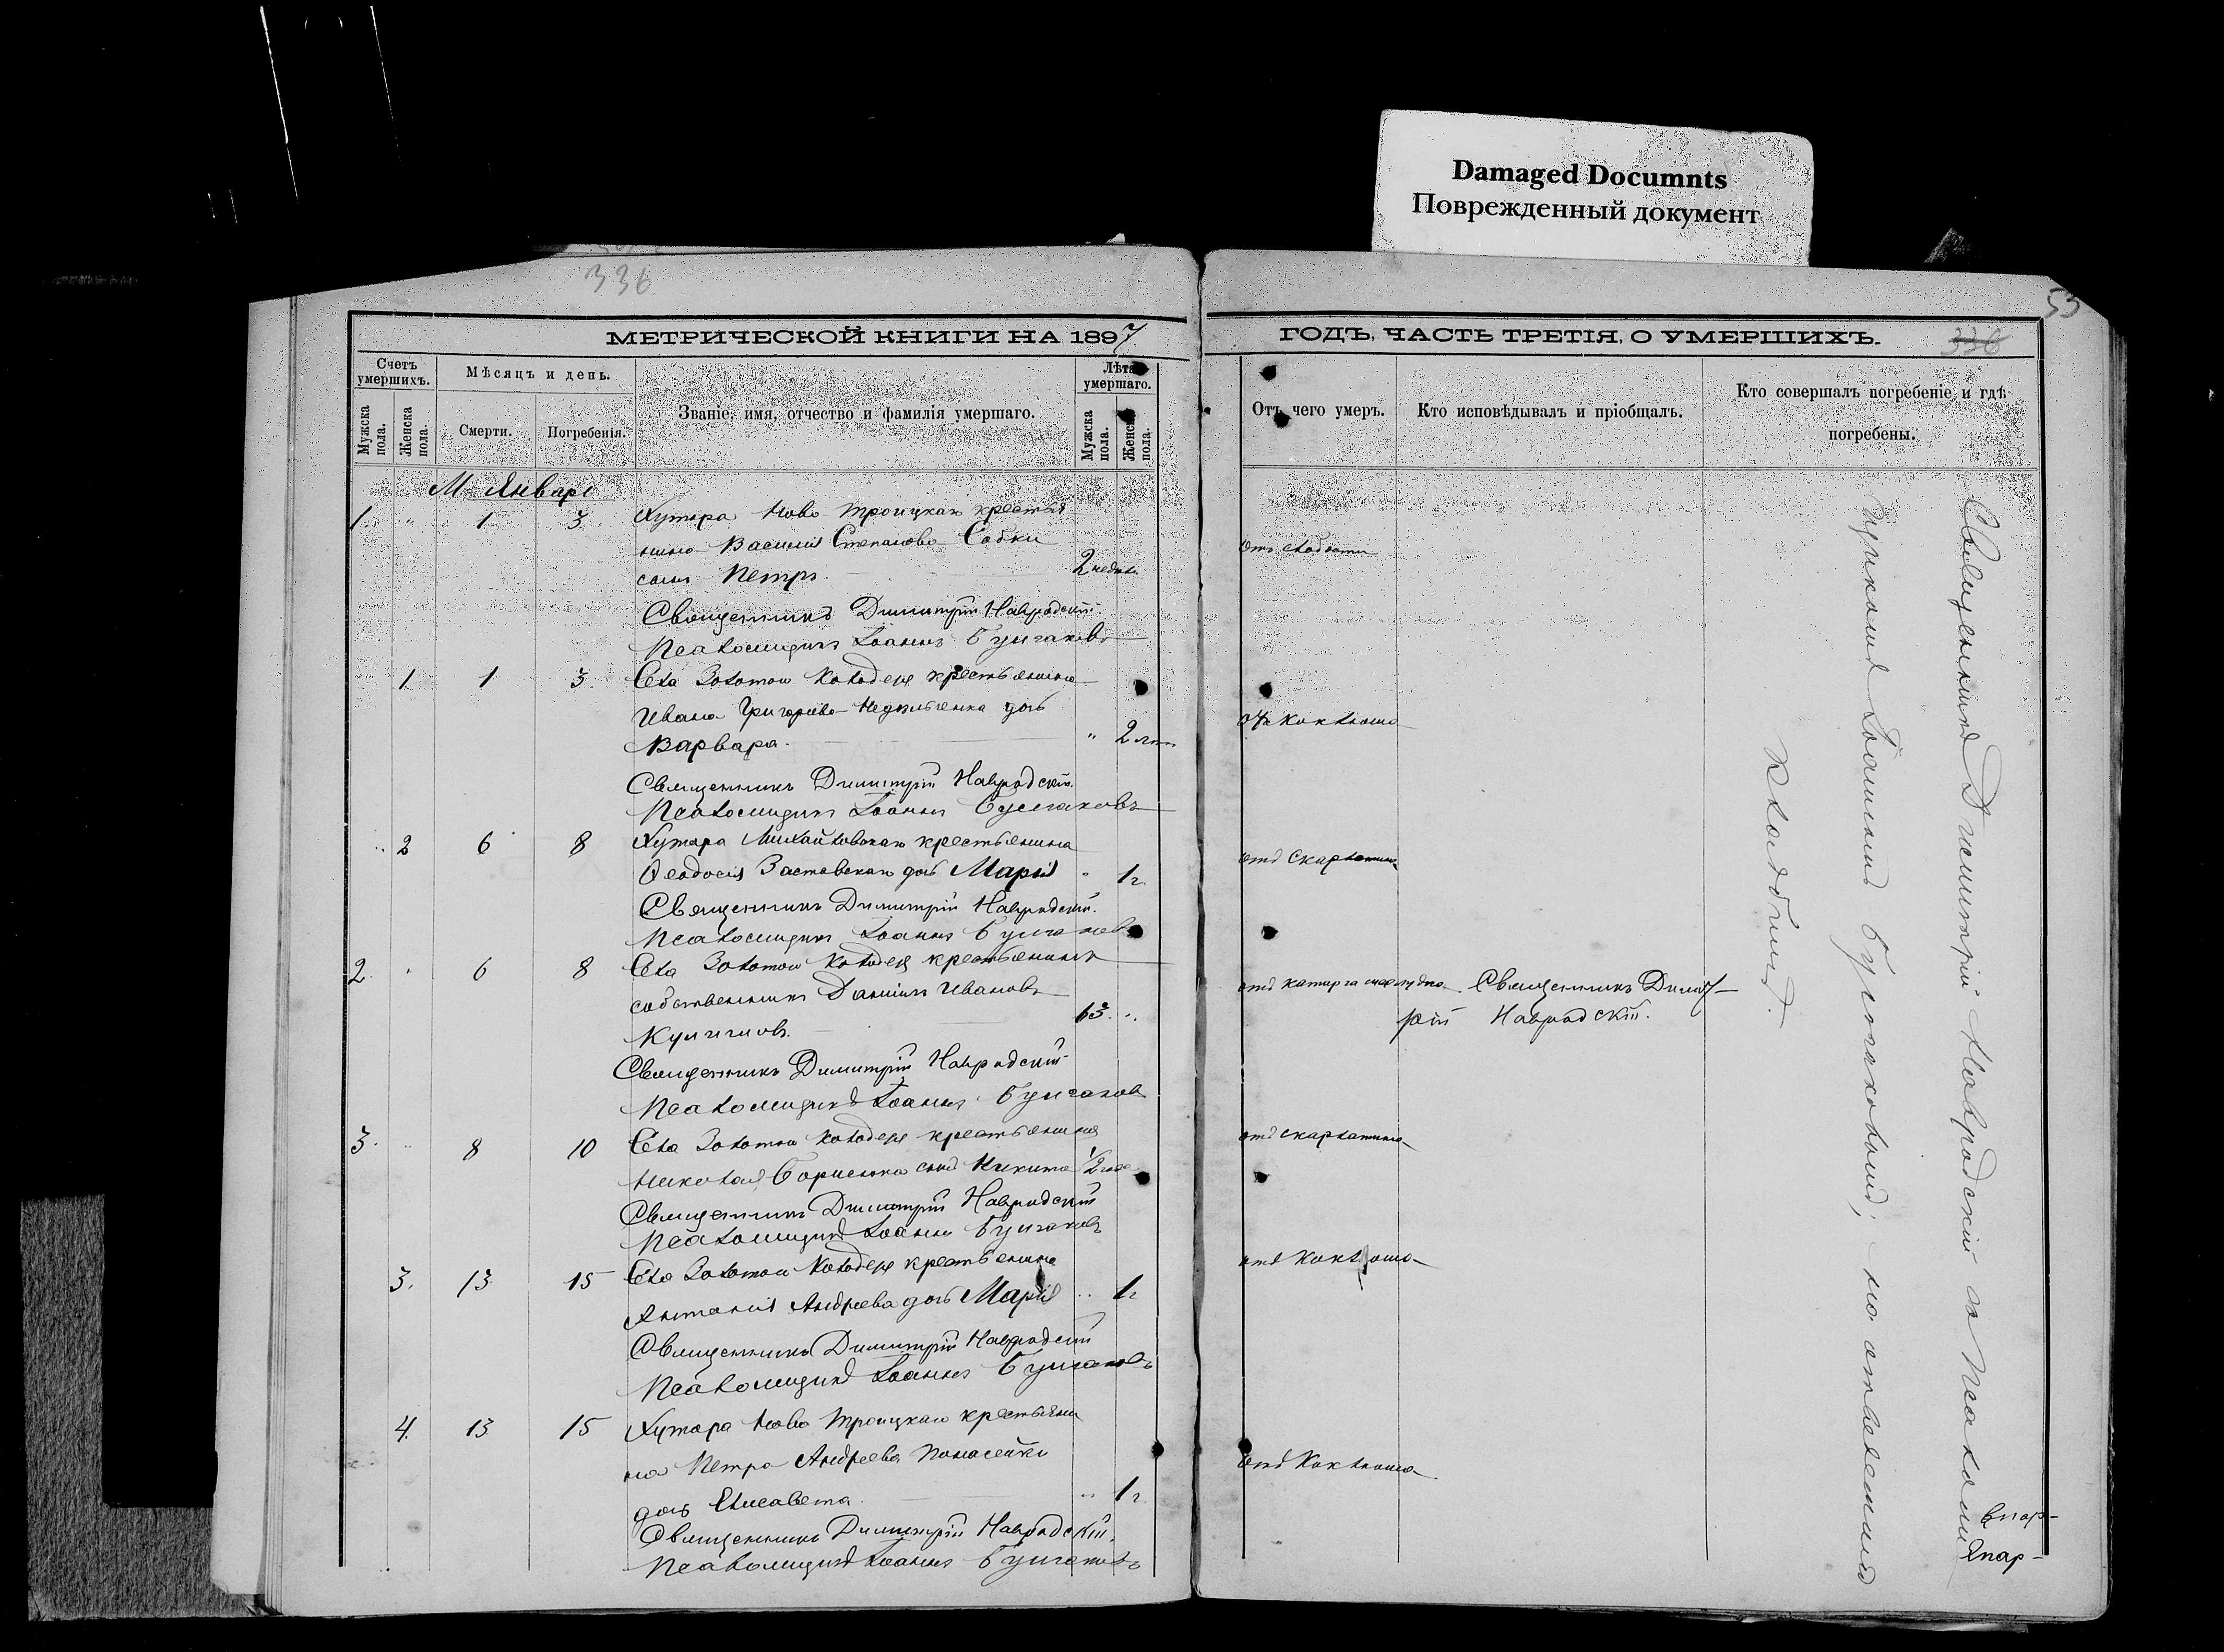 Damaged Documnts
Поврежденный документ
336
53
МЕТРИЧЕСКОЙ КНИГИ НА 1897
ГОДЪ, ЧАСТЬ ТРЕТІЯ, О УМЕРШИХЪ.
336
Счетъ умершихъ.
Мѣсяцъ и день.
Званіе, имя, отчество и фамилія умершаго.
Лѣта умершаго.
Мужска пола.
Женска пола.
Смерти.
Погребенія.
Мужска пола.
Женска пола.
Отъ чего умеръ.
Кто исповѣдывалъ и пріобщалъ.
Кто совершалъ погребеніе и гдѣ
погребены.
М. Январь
1 " 1 3 Хутора Ново Троицкаго крестья
нина Василія Степанова Собки
сынъ Петръ. 2 недѣли
отъ слабости
Священникъ Димитрій Навродскій
Псаломщикъ Іоаннъ Булгаковъ
1 1 3. Села Золотой Колодезь крестьянина
Ивана Григорьева дочь
Варвара. " 2 лѣтъ
отъ коклюша
Священникъ Димитрій Навродскій
Псаломщикъ Іоаннъ Булгаковъ
" 2 6 8 Хутора Михайловскаго крестьянина
Ѳеодосія Заставскаго дочь Марія " 1 г.
отъ Скарлатины
Священникъ Димитрій Навродскій.
Псаломщикъ Іоаннъ Булгаковъ
2 " 6 8 Села Золотой Колодезь крестьянинъ
собственникъ Даніилъ Ивановъ
63. "
отъ катарра желудка Священникъ Димит-
рій Навродскій.
Священникъ Димитрій Навродскій
Псаломщикъ Іоаннъ Булгаковъ
3. " 8 10 Села Золотой Колодезь крестьянина
Николая Борисенка сынъ Никита 1/2 года
отъ скарлатины
Священникъ Димитрій Навродскій
Псаломщикъ Іоаннъ Булгаковъ
3. 13 15 Села Золотой Колодезь крестьянина
Антонія Андреева дочь Марія " 1 г
отъ Коклюша
Священникъ Димитрій Навродскій
Псаломщикъ Іоаннъ Булгаковъ
4. 13 15 Хутора Ново Троицкаго крестьяни
на Петра Андреева
дочь Елисавета. " 1 г.
отъ Коклюша
Священникъ Димитрій Навродскій.
Псаломщикъ Іоаннъ Булгаковъ
Священникъ Димитрій Навродскій съ Псалом
щикомъ Іоанномъ Булгаковымъ, на
кладбищѣ.